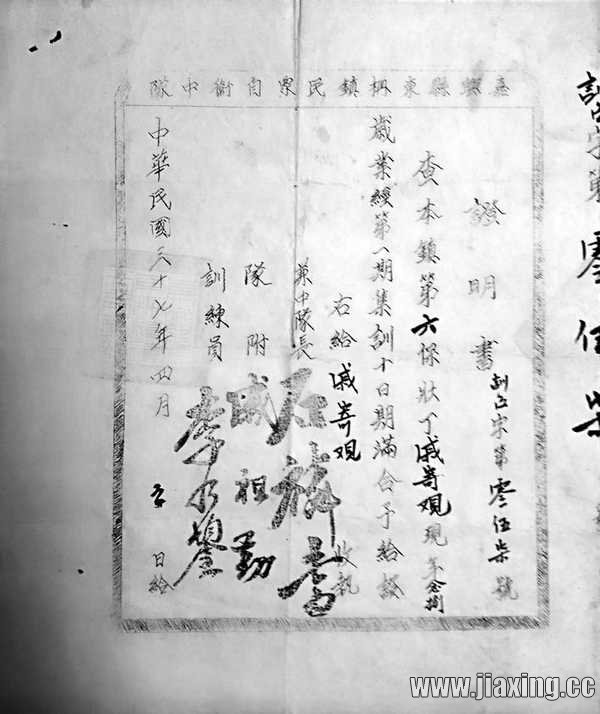 嘉興縣東柵鎮民眾自衛中隊
證明書 訓正字第零伍柒號
查本鎮第六保壯丁戚寄观現年念捌
歲業經第一期集訓十日期滿合予給證
右給戚寄观 收執
兼中隊長
隊附 戚祖勤
訓練員
中華民國三十七年四月 日給
零伍柒
www.jiaxing.cc